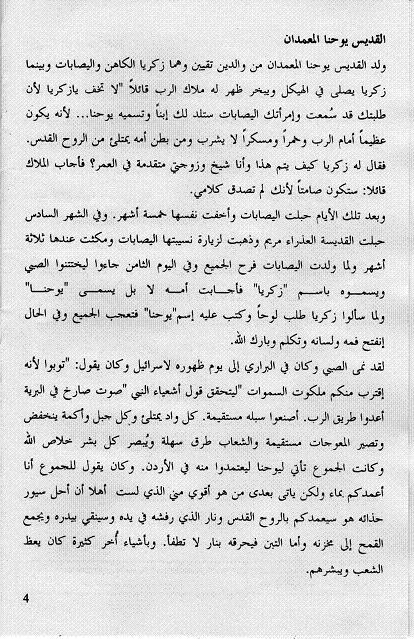 القديس يوحنا المعمدان
ولد القديس يوحنا المعمدان من والدين تقيين وهما زكريا الكاهن واليصابات وبينما
زكريا يصلى في الهيكل ويبخر ظهر له ملاك الرب قائلاً "لا تخف يازكريا لأن
طلبتك قد سُمعت وإمرأتك اليصابات ستلد لك إبناً وتسميه يوحنا... لأنه يكون
عظيماً أمام الرب وخمراً ومسكراً لا يشرب ومن بطن أمه يمتلئ من الروح القدس.
فقال له زكريا كيف يتم هذا وأنا شيخ وزوجتي متقدمة في العمر؟ فأجاب الملاك
قائلا: ستكون صامتاً لأنك لم تصدق كلامي.
وبعد تلك الأيام حبلت اليصابات وأخفت نفسها خمسة أشهر. وفي الشهر السادس
حبلت القديسة العذراء مريم وذهبت لزيارة نسيبتها اليصابات ومكثت عندها ثلاثة
أشهر ولما ولدت اليصابات فرح الجميع وفي اليوم الثامن جاءوا ليختتنوا الصبي
ويسموه باسم "زكريا" فأجابت أمه لا بل يسمى "يوحنا"
ولما سألوا زكريا طلب لوحاً وكتب عليه إسم"يوحنا" فتعجب الجميع وفي الحال
إنفتح فمه ولسانه وتكلم وبارك الله.
لقد نمى الصبي وكان في البراري إلى يوم ظهوره لاسرائيل وكان يقول: "توبوا لأنه
إقترب منكم ملكوت السموات "ليتحقق قول أشعياء النبي "صوت صارخ في البرية
أعدوا طريق الرب. أصنعوا سبله مستقيمة. كل واد يمتلئ وكل جبل وأكمة ينخفض
وتصير المعوجات مستقيمة والشعاب طرق سهلة ويُبصر كل بشر خلاص الله
وكانت الجموع تأتي ليوحنا ليعتمدوا منه في الأردن. وكان يقول للجموع أنا
أعمدكم بماء ولكن يأتى بعدى من هو أقوي مني الذي لست أهلا أن أحل سيور
حذائه هو سيعمدكم بالروح القدس ونار الذي رفشه في يده وسينقي بيدره ويجمع
القمح إلى مخزنه وأما التبن فيحرقه بنار لا تطفأ. وبأشياء أُخر كثيرة كان يعظ
الشعب ويبشرهم.
4